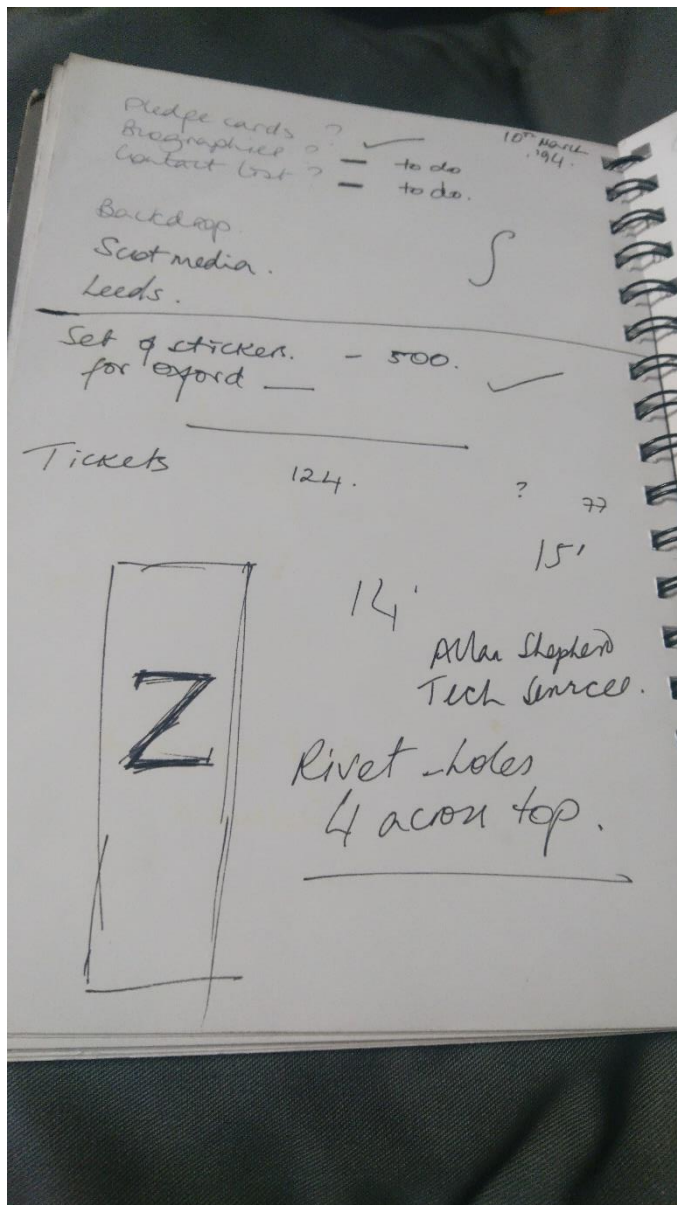 10th March
'94.
Pledge cards ? ✓
Biographies ? — to do
Contact list ? — to do.
Backdrop.
Scotmedia.
Leeds.
Set of stickers. — 500.
for Oxford — ✓
Tickets 124. ? 77
15'
14'
Allan Shepherd
Tech Services.
Z
Rivet holes
4 across top.